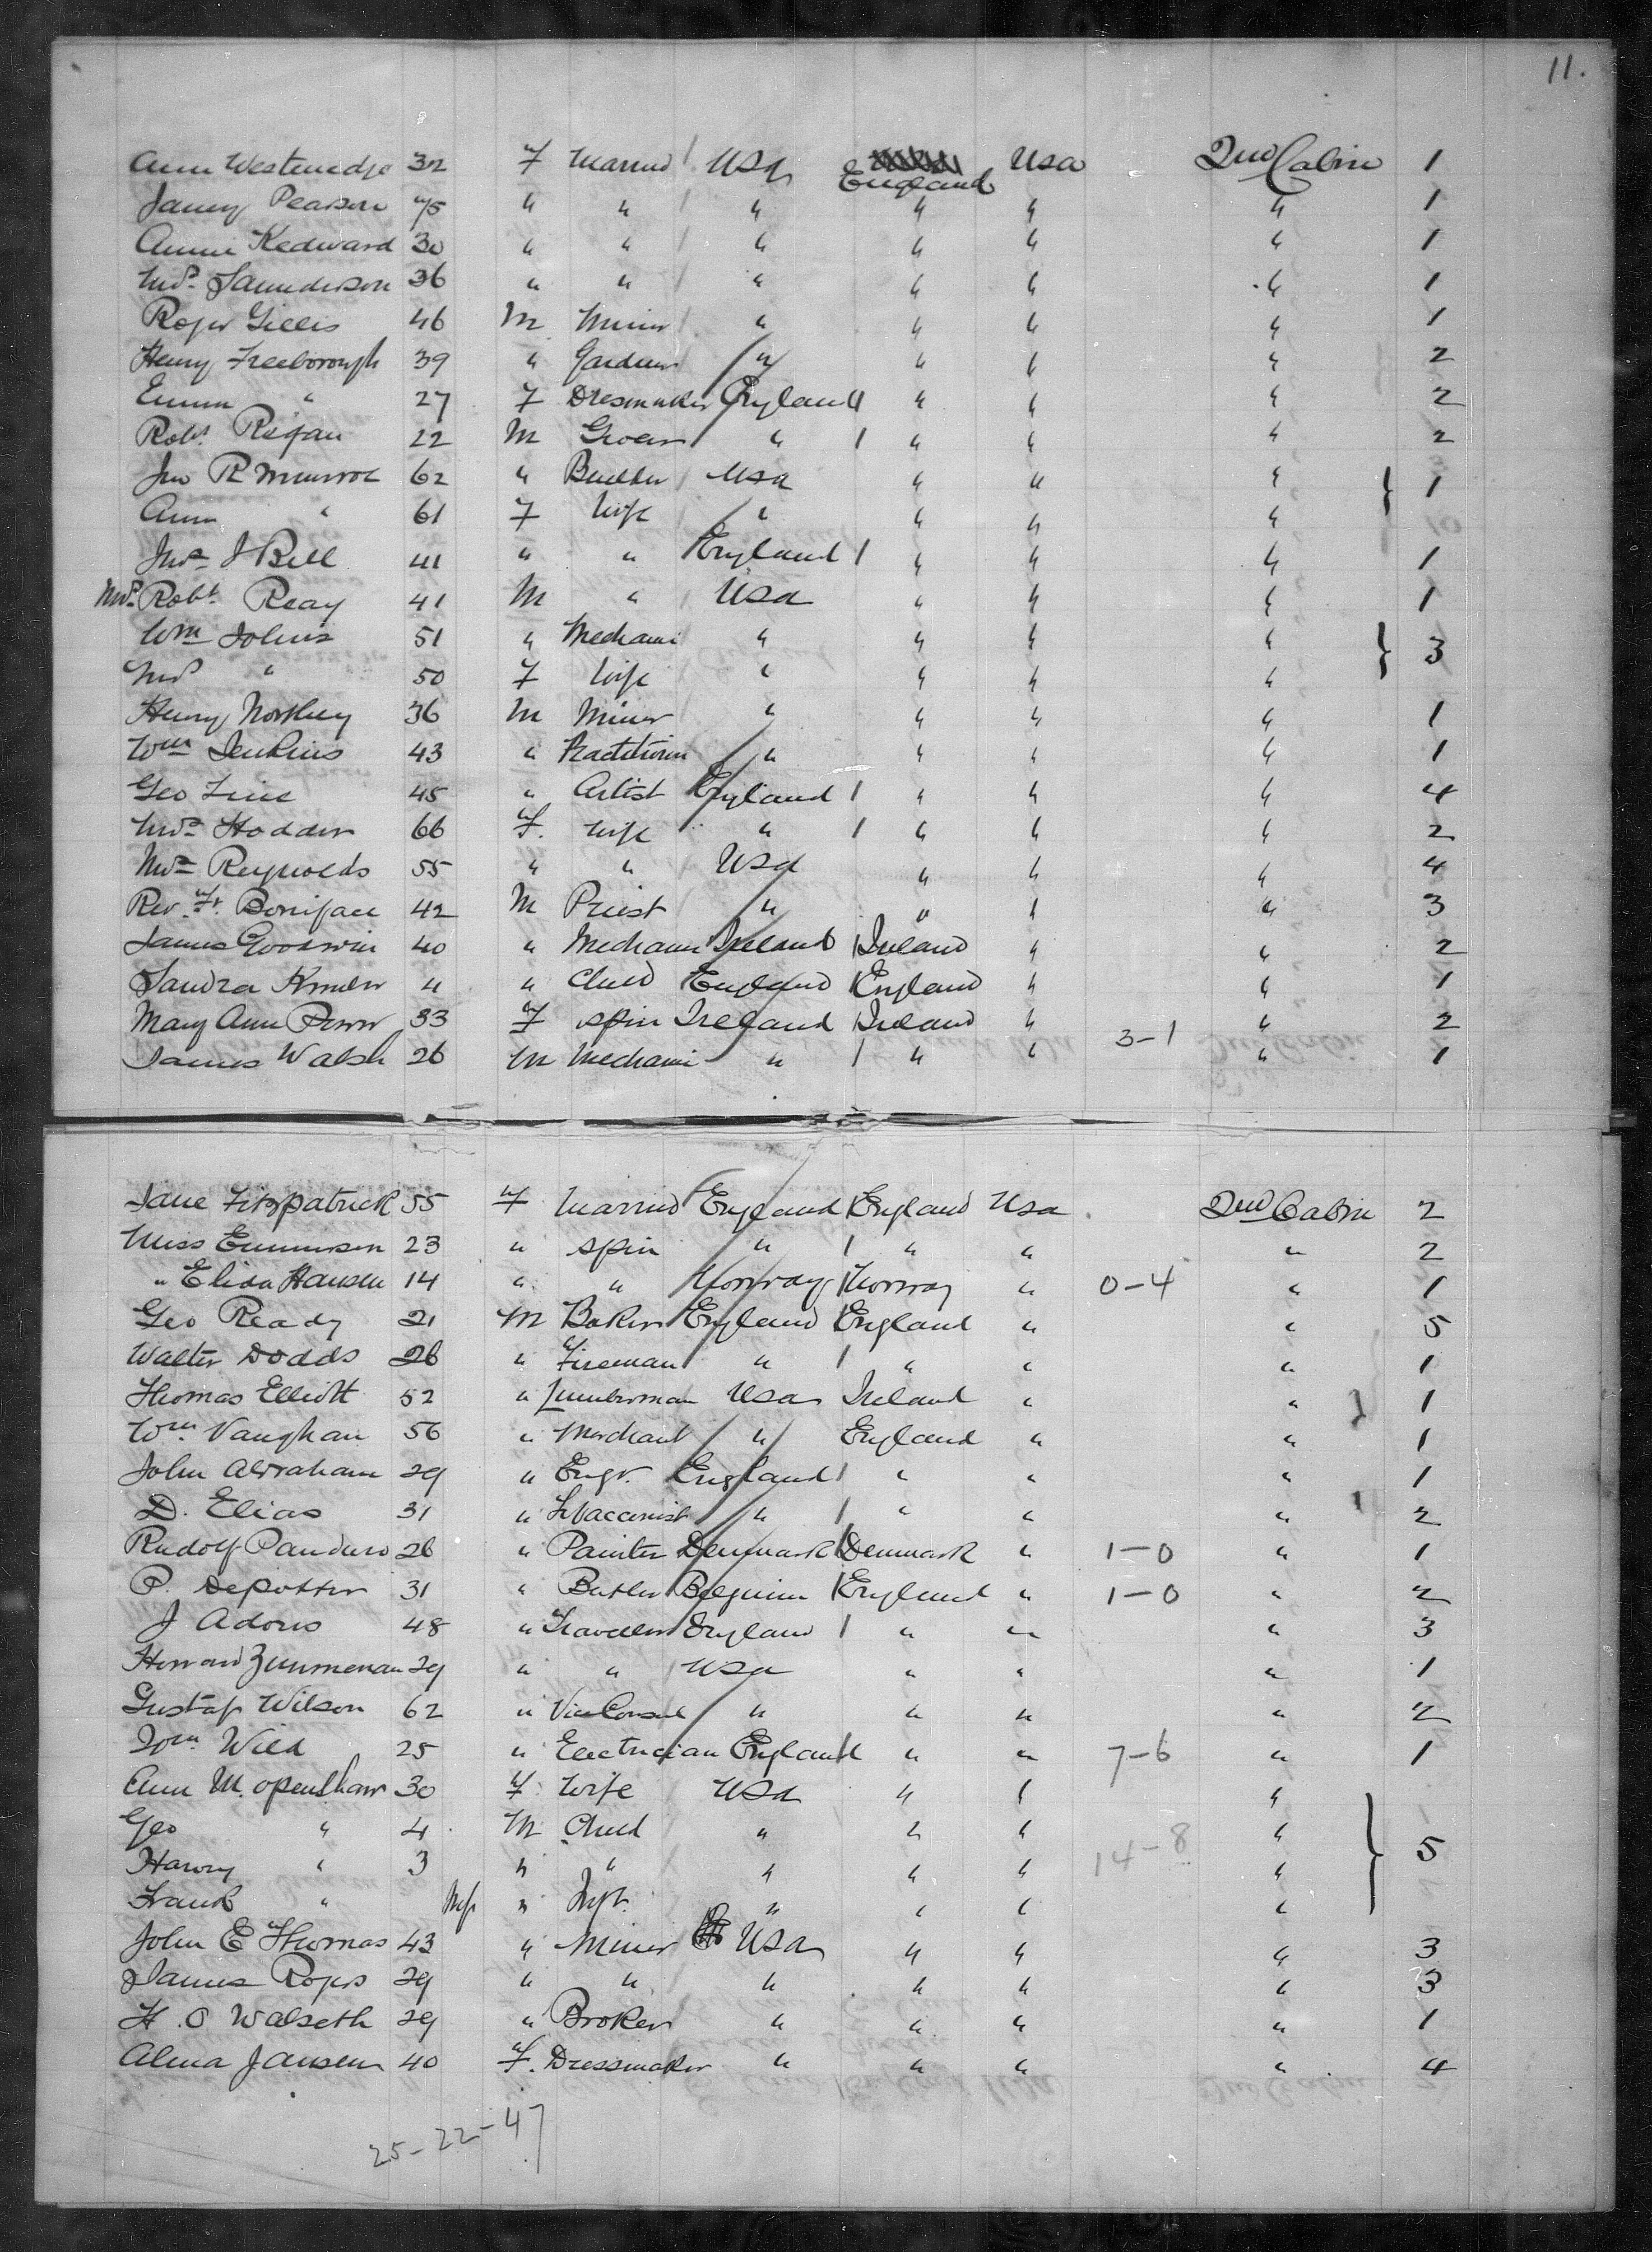 11.
Ann Westenedge 32 F Married USA England USA 2nd Cabin 1
Janey Pearson 45 " " " " " " 1
Annie Kedward 30 " " " " " " 1
Mrs. Saunderson 36 " " " " " " 1
Roger Gillis 46 M Miner " " " " 1
Henry Freeborough 39 " Gardener " " " " 2
Emma " 27 F Dresmaker England " " " 2
Robt. Regan 22 M Grocer " " " " 2
Jno R Munroe 62 " Builder USA " " " 1
Ann " 61 F Wife " " " "
Mrs J Bell 41 " " England " " " 1
Mrs. Robt. Reay 41 M " USA " " " 1
Wm Johns 51 " Mechanic " " " " 3
Mrs " 50 F Wife " " " "
Henry Northey 36 M Miner " " " " 1
Wm Jenkins 43 " Practitioner " " " " 1
Geo 45 " Artist England " " " 4
Mrs Hodder 66 F. Wife " " " " 2
Mrs Reynolds 55 " " USA " " " 4
Rev. Fr. Boniface 42 M Priest " " " " 3
James Goodwin 40 " Mechanic Ireland Ireland " " 2
Sandra 4 " Child England England " " 1
Mary Ann Power 33 F Spin Ireland Ireland " " 2
James Walsh 26 M Mechanic " " " 3-1 " 1
Jane Fitzpatrick 55 F Married England England USA 2nd Cabin 2
Miss Emmerson 23 " Spin " " " " 2
" Elida Hansen 14 " " Norway Norway " 0-4 " 1
Geo Ready 21 M Baker England England " " 5
Walter Dodds 26 " Fireman " " " " 1
Thomas Elliott 52 " Lumberman USA Ireland " " 1
Wm. Vaughan 56 " Merchant " England " " 1
John Abraham 29 " Engr. England " " " 1
D. Elias 31 " Tobacconist " " " " 2
Rudolf Panduro 26 " Painter Denmark Denmark " 1-0 " 1
P. Depotter 31 " Butler Belguim England " 1-0 " 2
J Adons 48 " Traveller England " " " 3
Howard Zimmerman 29 " " USA " " " 1
Gustaf Wilson 62 " Vice Consul " " " " 2
Wm. Wild 25 " Electrician England " " 7-6 " 1
Ann M. Openshaw 30 F Wife USA " " "
Geo " 4 M Child " " " 14-8 " 5
Harry " 3 " " " " " "
Frank " Inf " Inft. " " " "
John E Thomas 43 " Miner USA " " " 3
James Rogers 29 " " " " " " 3
H. O Walseth 29 " Broker " " " " 1
Alma Jansen 40 F. Dressmaker " " " " 4
25-22-47